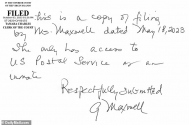 FILED
This is a copy of filing
by Ms. Maxwell dated May 18, 2023
She only has access to
US Postal Service as an
inmate
Respectfully Submitted
G Maxwell